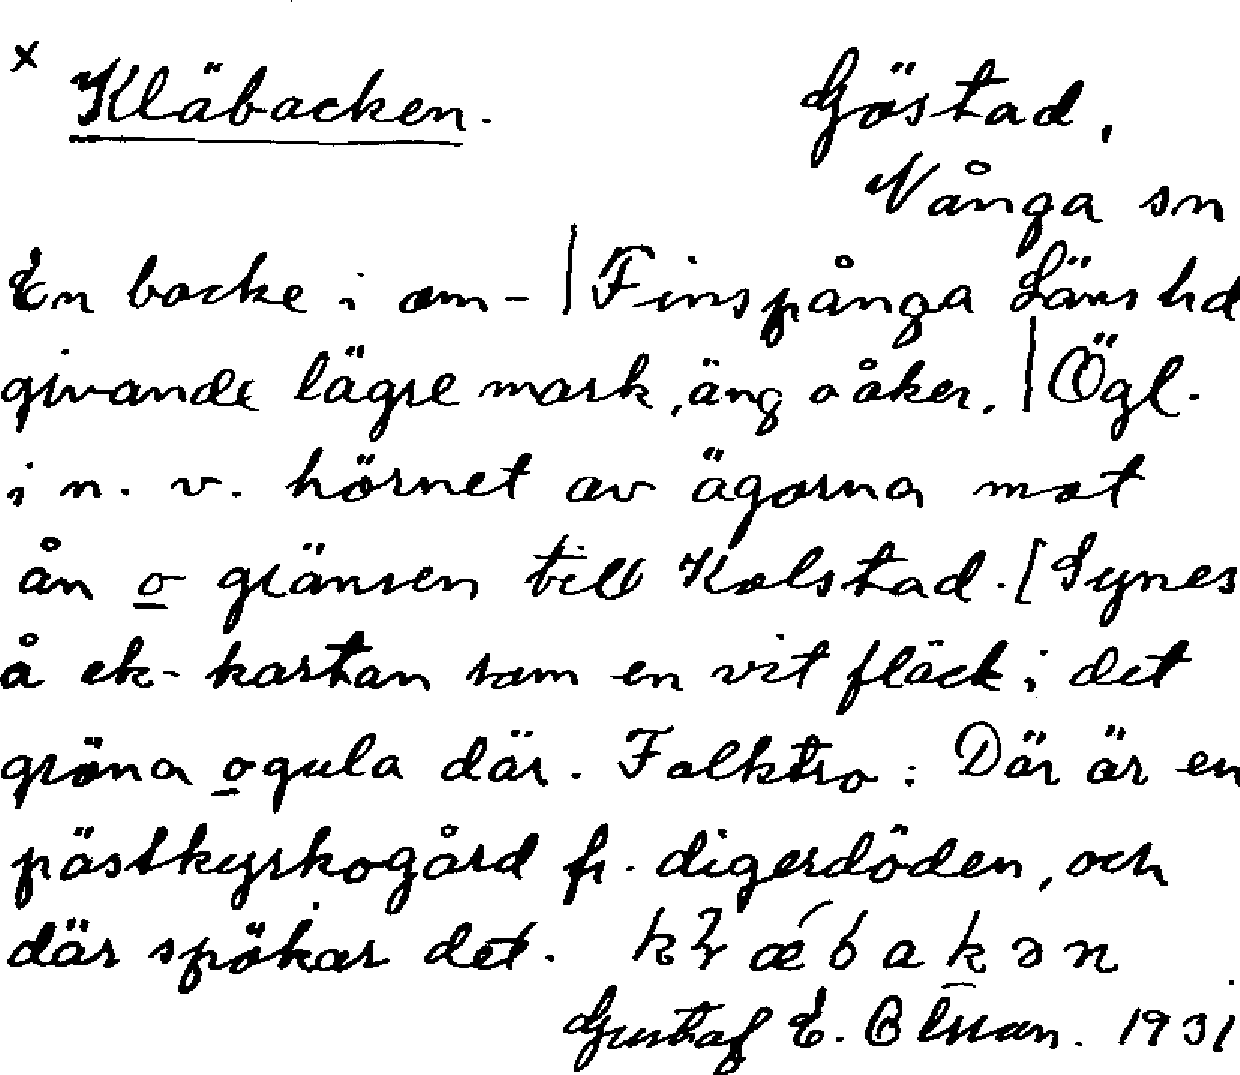 x Kläbacken. Göstad,
Vånga sn
En backe i om- | Finspånga Läns hd
givande lägre mark, äng o åker. | Ögl.
i n. v. hörnet av ägorna mot
ån o gränsen till Kolstad. [Synes
å ek-kartan som en vit fläck i det
gröna o gula där. Folktro: Där är en
pästkyrkogård fr. digerdöden, och
där spökar det.
Gustaf E. Olsson. 1931